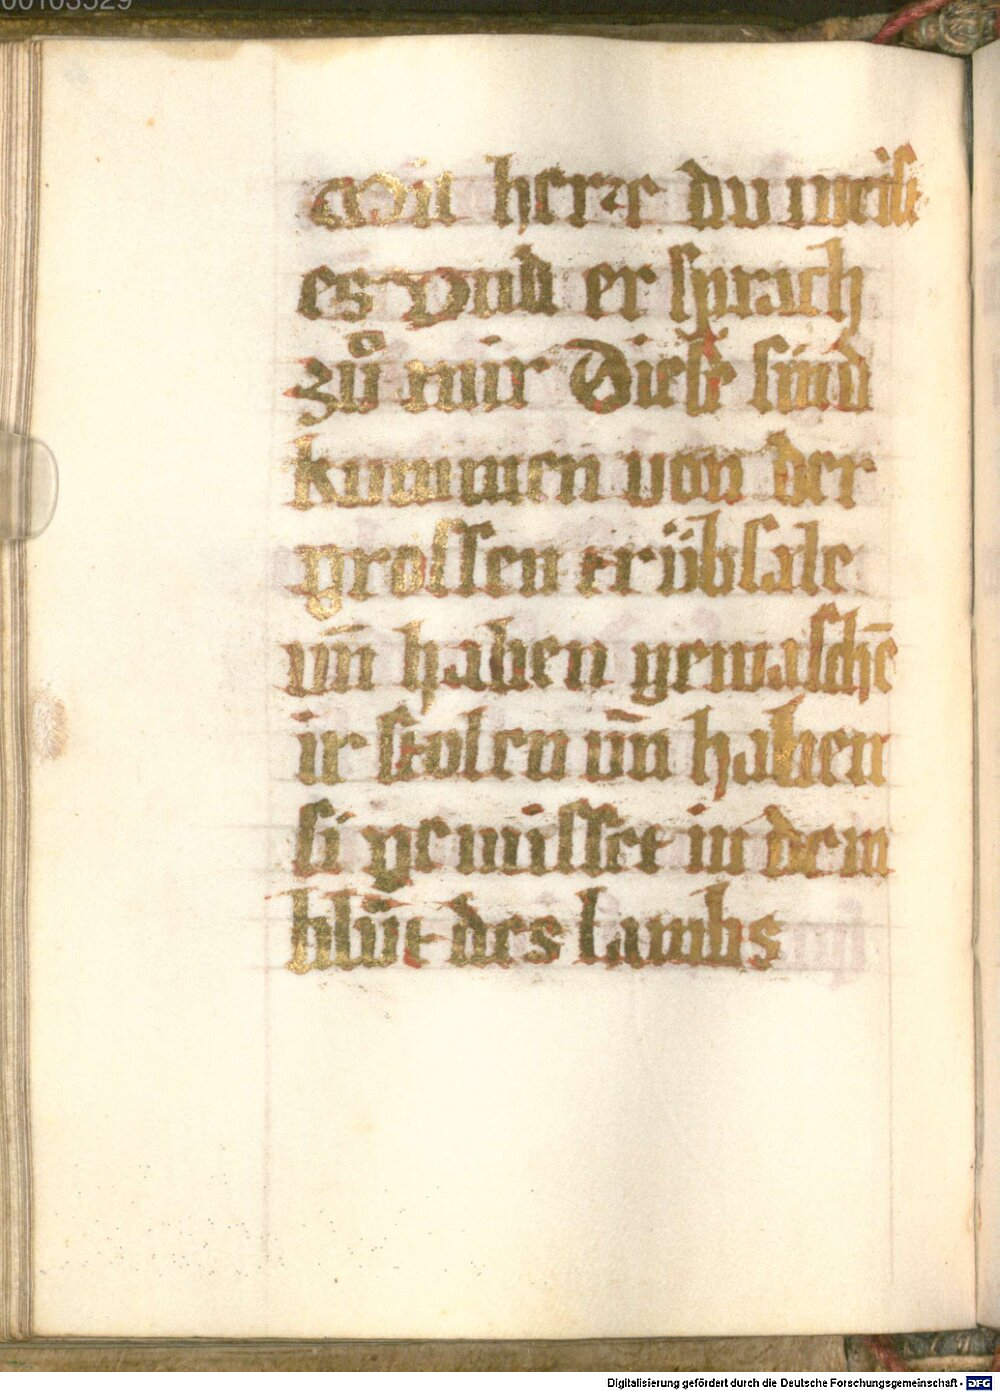 Min herre du weist
es Vnd er sprach
zuͦ mir Diese sind
kummen von der
grossen trübsale
vn̄ haben gewaschē
ir stolen vn̄ haben
si gewisset in dem
bluͦt des lambs
Digitalisierung gefördert durch die Deutsche Forschungsgemeinschaft - DFG